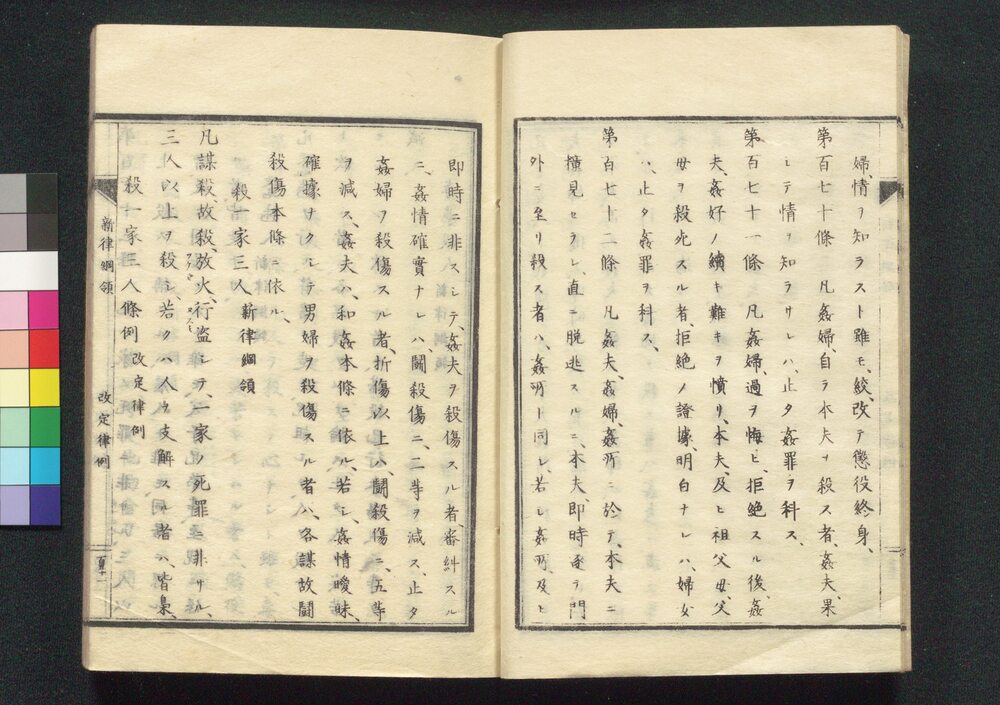 婦、情ヲ知ラスト雖モ、絞、改テ懲役終身、
第百七十條 凡姦婦、自ラ本夫ヲ殺ス者、姦夫果
シテ情ヲ知ラサレハ、止タ姦罪ヲ科ス、
第百七十一條 凡姦婦、過ヲ悔ヒ、拒絶スル後、姦
夫、姦好ノ續キ難キヲ憤リ、本夫、及ヒ祖父母、父
母ヲ殺死スル者、拒絶ノ證據、明白ナレハ、婦女
ハ、止タ姦罪ヲ科ス、
第百七十二條 凡姦夫、姦婦、姦所ニ於テ、本夫ニ
撞見セラレ、直ニ脱逃スルニ、本夫、即時逐テ門
外ニ至リ殺ス者ハ、姦所ト同シ、若シ姦所及ヒ
即時ニ非スシテ、姦夫ヲ殺傷スル者、審糾スル
ニ、姦情確實ナレハ、鬪殺傷ニ、二等ヲ減ス、止タ
姦婦ヲ殺傷スル者、折傷以上ハ、鬪殺傷ニ、五等
ヲ減ス、姦夫ハ、和姦本條ニ依ル、若シ、姦情曖昧、
確據ナクシテ、男婦ヲ殺傷スル者ハ、各謀故鬪
殺傷本條ニ依ル、
殺一家三人 新律綱領
凡謀殺、故殺、放火、行盗シテ、一家ノ死罪ニ非サル、
三人以上ヲ殺シ、若クハ人ヲ支解スル者ハ、皆梟、
殺一家三人條例 改定律例
新律綱領 改定律例